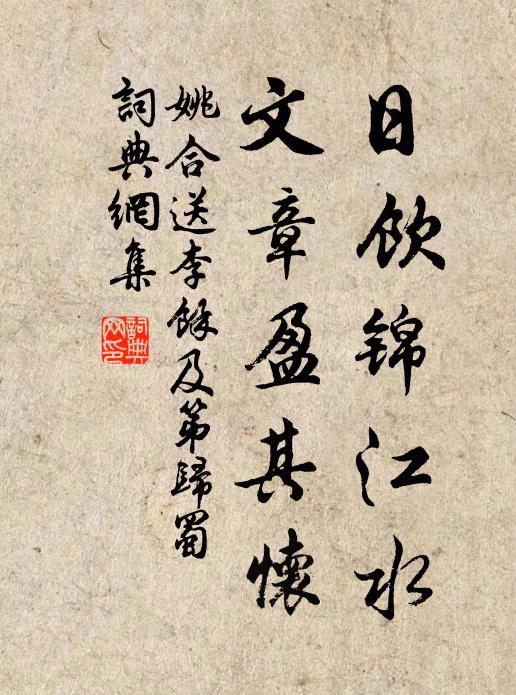 日飲錦江水
文章盈其懷
姚合送李餘及第歸蜀
詞典網集
詞典网印